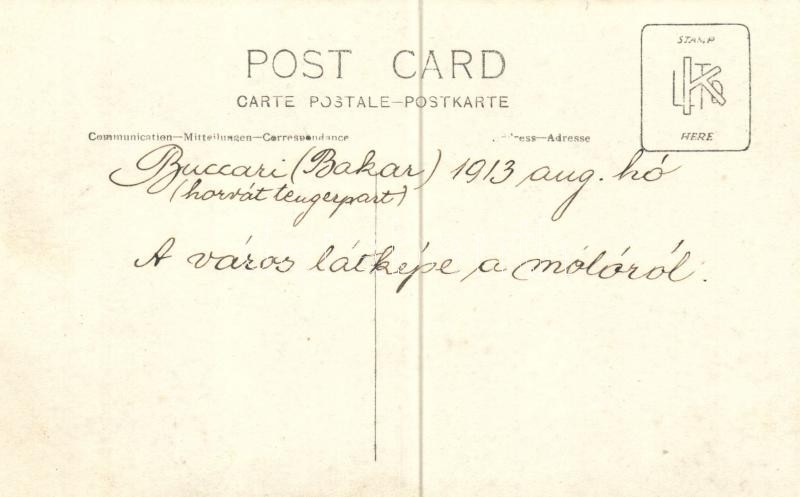 POST CARD
CARTE POSTALE—POSTKARTE
STAMP
HERE
Communication—Mitteilungen—Correspondance
—Adresse
Buccari (Bakar) 1913 aug. hó
(horvát tengerpart)
A város látképe a mólóról.